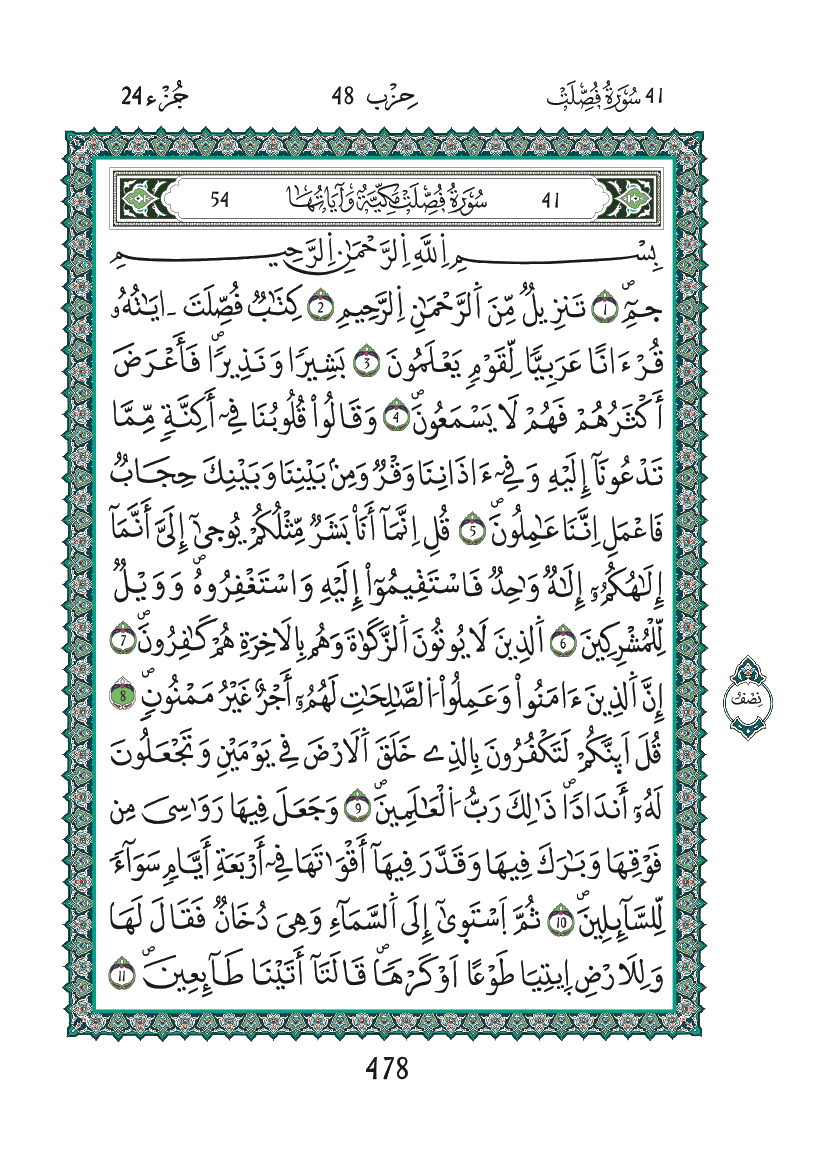 41 سُورَةُ فُصِّلَتْ حِزْب 48 جُزْء 24
41 سُورَةُ فُصِّلَتْ مَكِّيَّةٌ وَآيَاتُهَا 54
بِسْمِ اِللَّهِ اِلرَّحْمَٰنِ اِلرَّحِيمِ
حٓمِٓۖ 1 تَنزِيلٌ مِّنَ اَلرَّحْمَٰنِ اِلرَّحِيمِ 2 كِتَٰبٌ فُصِّلَتَ ـ ايَٰتُهُۥ
قُرْءَاناً عَرَبِيّاً لِّقَوْمٖ يَعْلَمُونَ 3 بَشِيراً وَنَذِيراًۖ فَأَعْرَضَ
أَكْثَرُهُمْ فَهُمْ لَا يَسْمَعُونَۖ 4 وَقَالُواْ قُلُوبُنَا فِےٓ أَكِنَّةٖ مِّمَّا
تَدْعُونَآ إِلَيْهِ وَفِےٓ ءَاذَانِنَا وَقْرٌ وَمِنۢ بَيْنِنَا وَبَيْنِكَ حِجَابٌ
فَاعْمَلِ اِنَّنَا عَٰمِلُونَۖ 5 قُلِ اِنَّمَآ أَنَا بَشَرٌ مِّثْلُكُمْ يُوحَىٰٓ إِلَىَّ أَنَّمَآ
إِلَٰهُكُمُۥٓ إِلَٰهٌ وَٰحِدٌ فَاسْتَقِيمُوٓاْ إِلَيْهِ وَاسْتَغْفِرُوهُۖ وَوَيْلٌ
لِّلْمُشْرِكِينَ 6 اَلذِينَ لَا يُوتُونَ اَلزَّكَوٰةَ وَهُم بِالَاخِرَةِ هُمْ كَٰفِرُونَۖ 7
إِنَّ اَلذِينَ ءَامَنُواْ وَعَمِلُواْ اُلصَّٰلِحَٰتِ لَهُمُۥٓ أَجْرٌ غَيْرُ مَمْنُونٖۖ 8
نِصْفُ
قُلَ اَئِنَّكُمْ لَتَكْفُرُونَ بِالذِے خَلَقَ اَلَارْضَ فِے يَوْمَيْنِ وَتَجْعَلُونَ
لَهُۥٓ أَندَاداًۖ ذَٰلِكَ رَبُّ اُلْعَٰلَمِينَۖ 9 وَجَعَلَ فِيهَا رَوَٰسِىَ مِن
فَوْقِهَا وَبَٰرَكَ فِيهَا وَقَدَّرَ فِيهَآ أَقْوَٰتَهَا فِےٓ أَرْبَعَةِ أَيَّامٖ سَوَآءً
لِّلسَّآئِلِينَۖ 10 ثُمَّ اَسْتَوَىٰٓ إِلَى اَلسَّمَآءِ وَهِىَ دُخَانٌ فَقَالَ لَهَا
وَلِلَارْضِ اِيتِيَا طَوْعاً اَوْ كَرْهاًۖ قَالَتَآ أَتَيْنَا طَآئِعِينَۖ 11
478